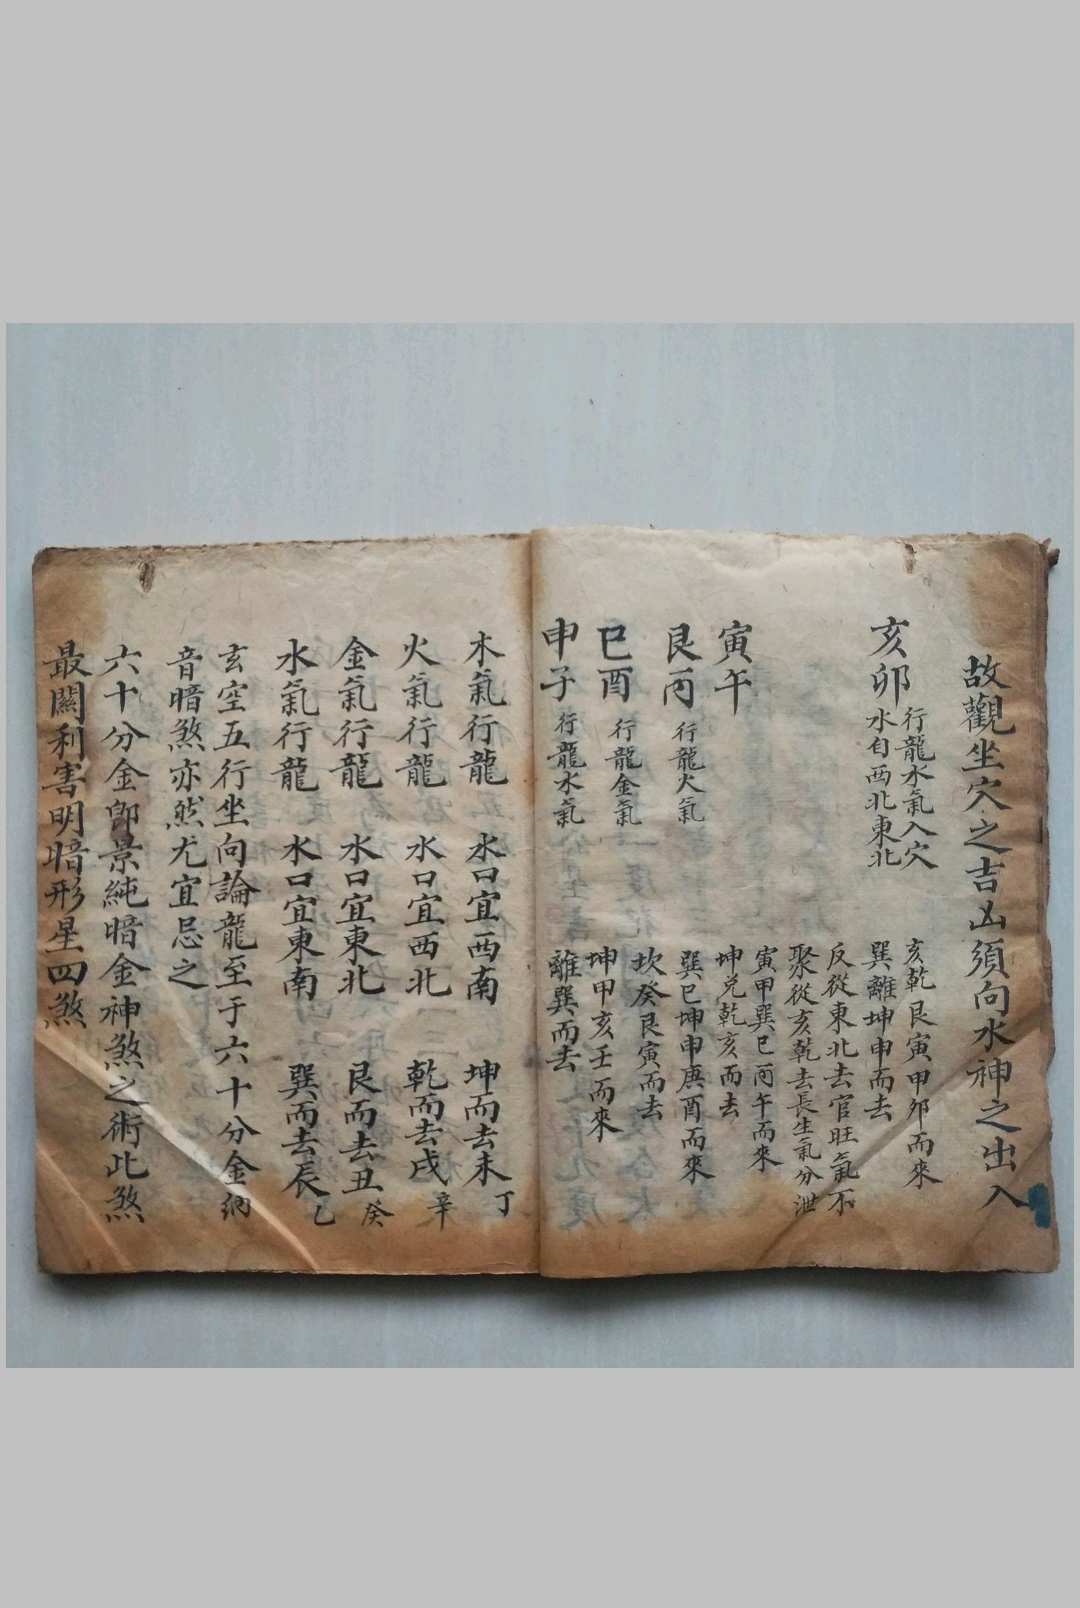 故觀坐穴之吉凶須向水神之出入
亥卯
行龍水氣入穴
水自西北東北
亥乾艮寅甲卯而來
巽離坤申而去
反從東北去官旺氣不
聚從亥乾去長生氣分泄
寅午
艮丙
行龍火氣
寅甲巽巳丙午而來
坤兑乾亥而去
巳酉
行龍金氣
巽巳坤申庚酉而來
坎癸艮寅而去
申子
行龍水氣
坤甲亥壬而來
離巽而去
木氣行龍 水口宜西南 坤而去未丁
火氣行龍 水口宜西北 乾而去戌辛
金氣行龍 水口宜東北 艮而去丑癸
水氣行龍 水口宜東南 巽而去辰乙
玄空五行坐向論龍至于六十分金納
音暗煞亦然尤宜忌之
六十分金即景純暗金神煞之術此煞
最關利害明暗形星四煞